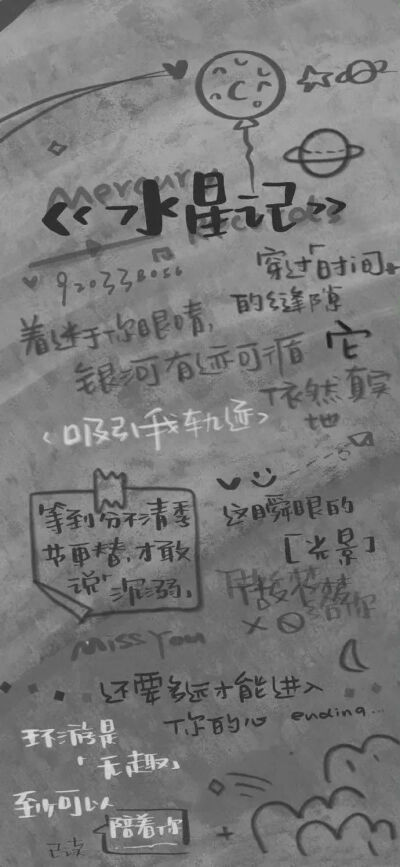 Mercury
Records
《水星记》
920338056
穿过「时间」
的缝隙
着迷于你眼睛,
银河有迹可循
它
依然真实
地
〈吸引我轨迹〉
等到分不清季
节更替,才敢
说"沉溺。
这瞬眼的
[光景]
给你
miss you
还要多远才能进入
你的心 ending...
环游是
「无趣」
至少可以
陪着你
已读